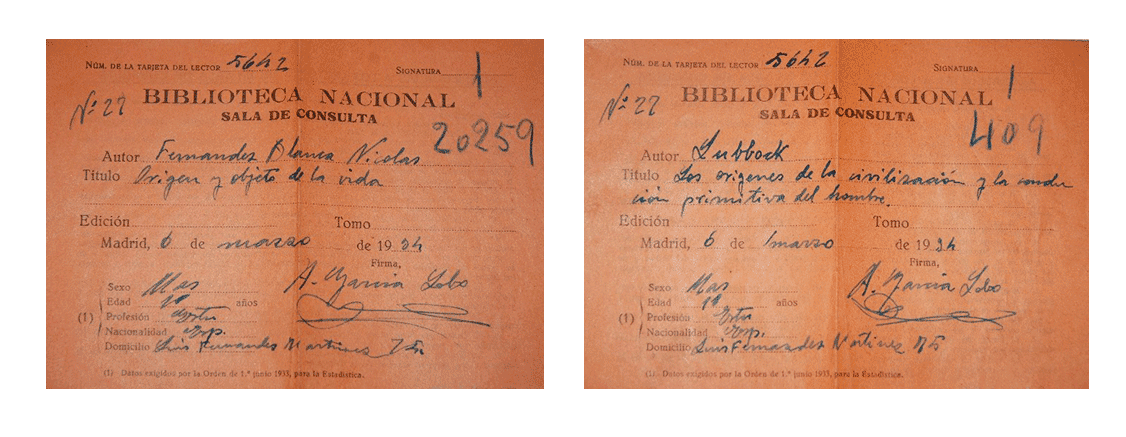 NÚM. DE LA TARJETA DEL LECTOR 5642
SIGNATURA 1
Nº 27
BIBLIOTECA NACIONAL
SALA DE CONSULTA
20259
Autor Fernandez Blanca Nicolas
Título Origen y objeto de la vida
Edición Tomo
Madrid, 6 de marzo de 1934
Firma,
Sexo Mas A. Garcia Lobo
Edad años
(1) Profesión Estu
Nacionalidad Esp.
Domicilio Luis Fernandez Martinez 75
(1) Datos exigidos por la Orden de 1.º junio 1933, para la Estadística.
NÚM. DE LA TARJETA DEL LECTOR 5642
SIGNATURA 1
Nº 27
BIBLIOTECA NACIONAL
SALA DE CONSULTA
409
Autor Lubbock
Título Los origenes de la civilización y la condi
ción primitiva del hombre.
Edición Tomo
Madrid, 6 de marzo de 1934
Firma,
Sexo Mas A. Garcia Lobo
Edad años
(1) Profesión Estu
Nacionalidad Esp.
Domicilio Luis Fernandez Martinez 75
(1) Datos exigidos por la Orden de 1.º junio 1933, para la Estadística.